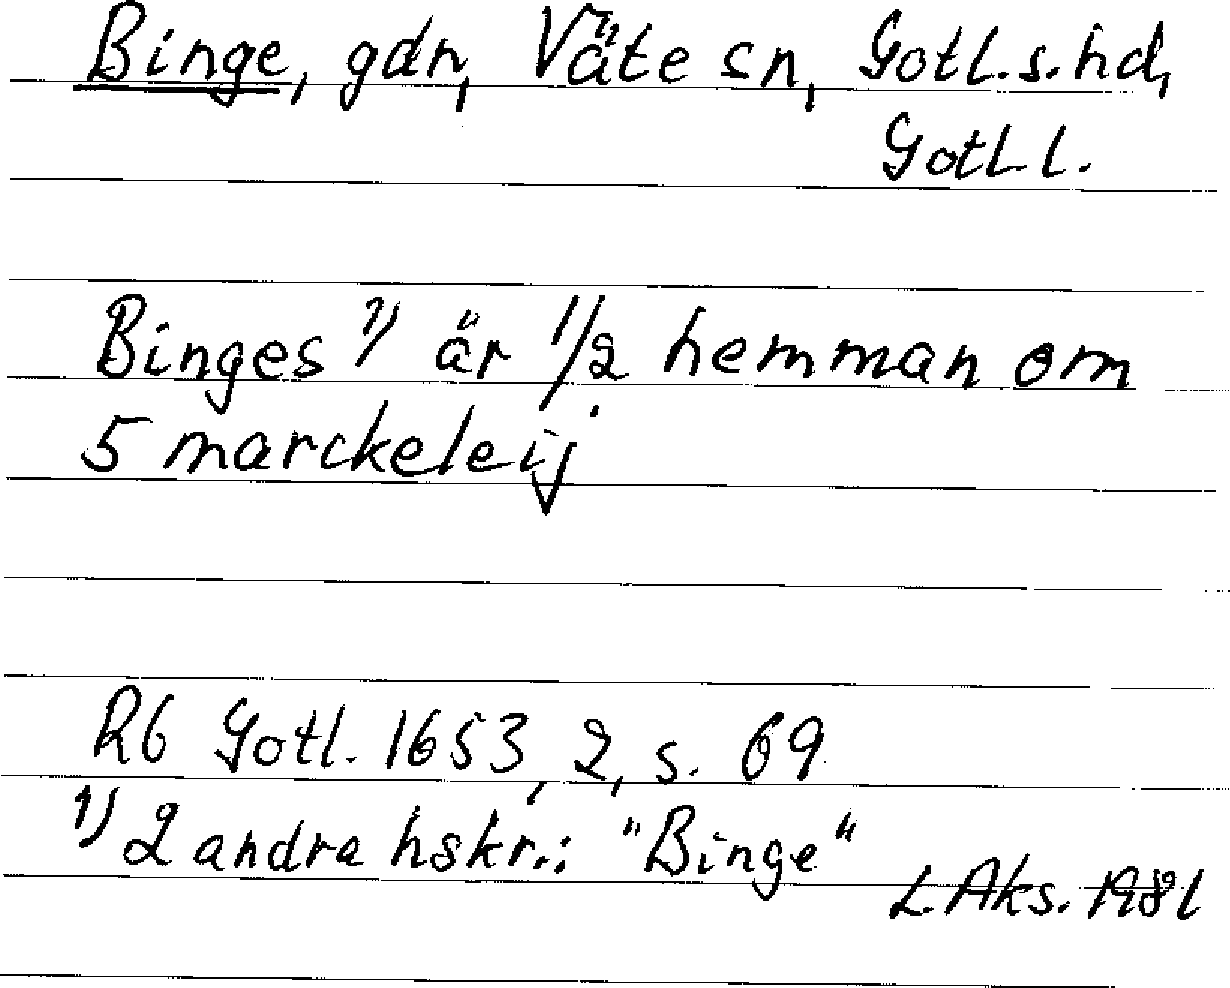 Binge, gdn, Väte sn, Gotl. s. hd,
Gotl. l.
Binges ¹⁾ är 1/2 hemman om
5 marckeleij
Rb Gotl. 1653, 2, s. 69
¹⁾ 2 andra hskr.: "Binge"
L. Aks. 1981